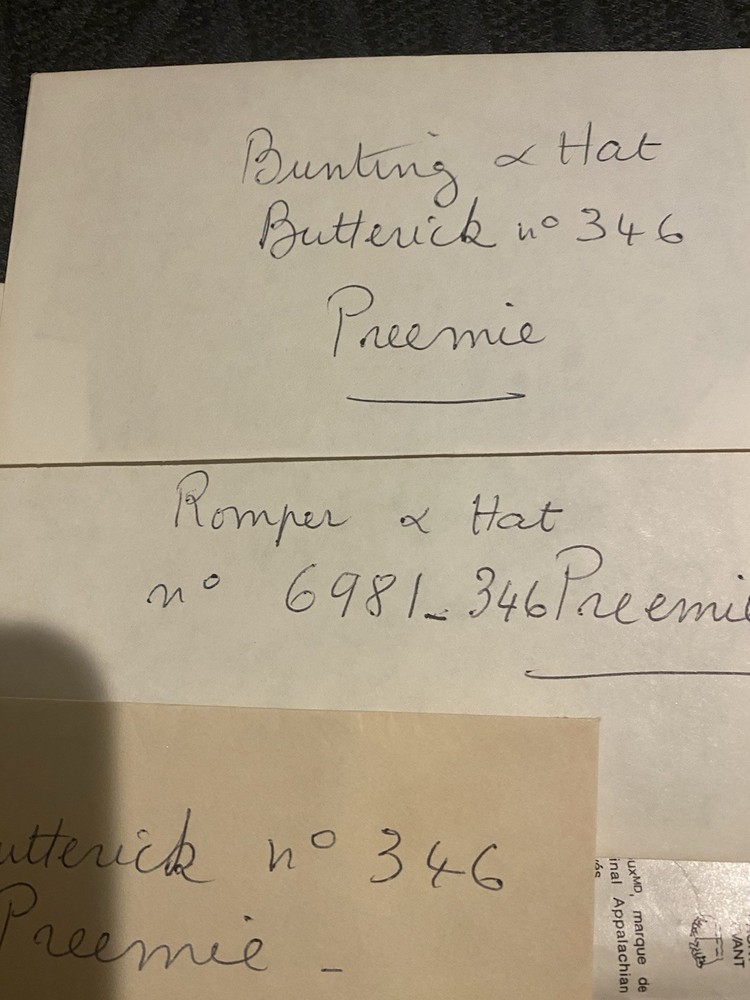 Bunting & Hat
Butterick nº 346
Preemie
Romper & Hat
nº 6981_346 Preemie
utterick nº 346
Preemie -
uxMD, marque de
inal Appalachian
VANT